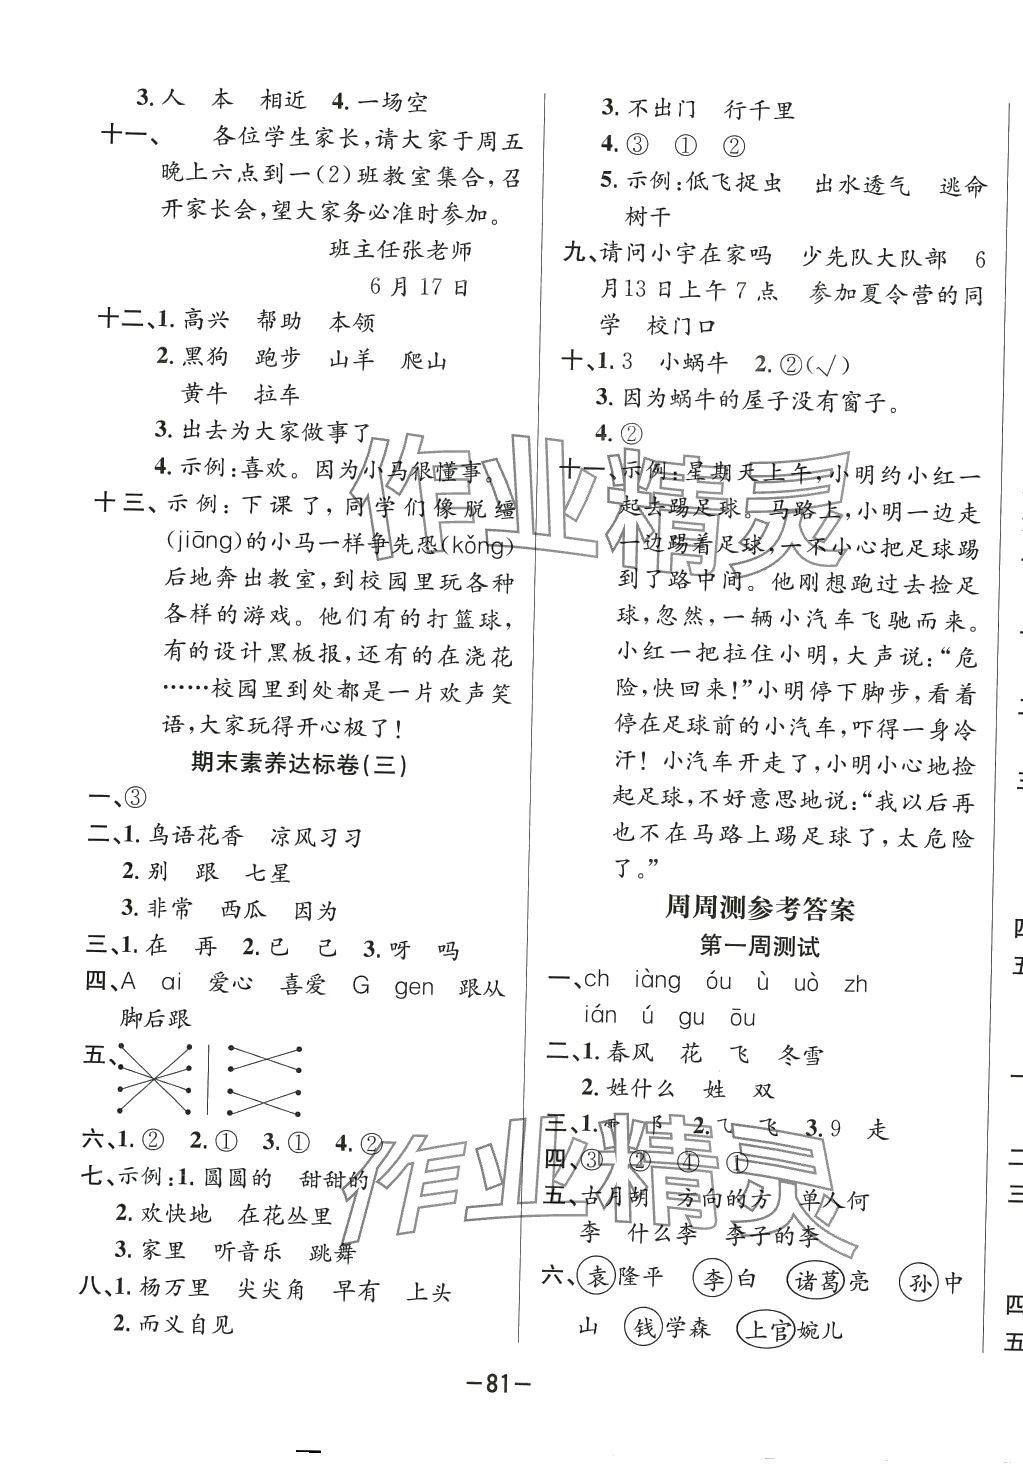 3. 人　本　相近　4. 一场空
十一、　　各位学生家长，请大家于周五
晚上六点到一(2)班教室集合，召
开家长会，望大家务必准时参加。
班主任张老师
6月17日
十二、1. 高兴　帮助　本领
2. 黑狗　跑步　山羊　爬山
黄牛　拉车
3. 出去为大家做事了
4. 示例：喜欢。因为小马很懂事。
十三、示例：下课了，同学们像脱缰
(jiāng)的小马一样争先恐(kǒng)
后地奔出教室，到校园里玩各种
各样的游戏。他们有的打篮球，
有的设计黑板报，还有的在浇花
……校园里到处都是一片欢声笑
语，大家玩得开心极了！
期末素养达标卷(三)
一、③
二、1. 鸟语花香　凉风习习
2. 别　跟　七星
3. 非常　西瓜　因为
三、1. 在　再　2. 已　己　3. 呀　吗
四、A　ai　爱心　喜爱　G　gen　跟从
脚后跟
五、
六、1. ②　2. ①　3. ①　4. ②
七、示例：1. 圆圆的　甜甜的
2. 欢快地　在花丛里
3. 家里　听音乐　跳舞
八、1. 杨万里　尖尖角　早有　上头
2. 而义自见
3. 不出门　行千里
4. ③　①　②
5. 示例：低飞捉虫　出水透气　逃命
树干
九、请问小宇在家吗　少先队大队部　6
月13日上午7点　参加夏令营的同
学　校门口
十、1. 3　小蜗牛　2. ②(√)
3. 因为蜗牛的屋子没有窗子。
4. ②
十一、示例：星期天上午，小明约小红一
起去踢足球。马路上，小明一边走
一边踢着足球，一不小心把足球踢
到了路中间。他刚想跑过去捡足
球，忽然，一辆小汽车飞驰而来。
小红一把拉住小明，大声说：“危
险，快回来！”小明停下脚步，看着
停在足球前的小汽车，吓得一身冷
汗！小汽车开走了，小明小心地捡
起足球，不好意思地说：“我以后再
也不在马路上踢足球了，太危险
了。”
周周测参考答案
第一周测试
一、ch　iàng　óu　ù　uò　zh
ián　ú　gu　ōu
二、1. 春风　花　飞　冬雪
2. 姓什么　姓　双
三、1. ⻗　阝　2. ⺄　飞　3. 9　走
四、③　②　④　①
五、古月胡　方向的方　单人何
李　什么李　李子的李
六、袁隆平　李白　诸葛亮　孙中
山　钱学森　上官婉儿
—81—
作业精灵
作业精灵